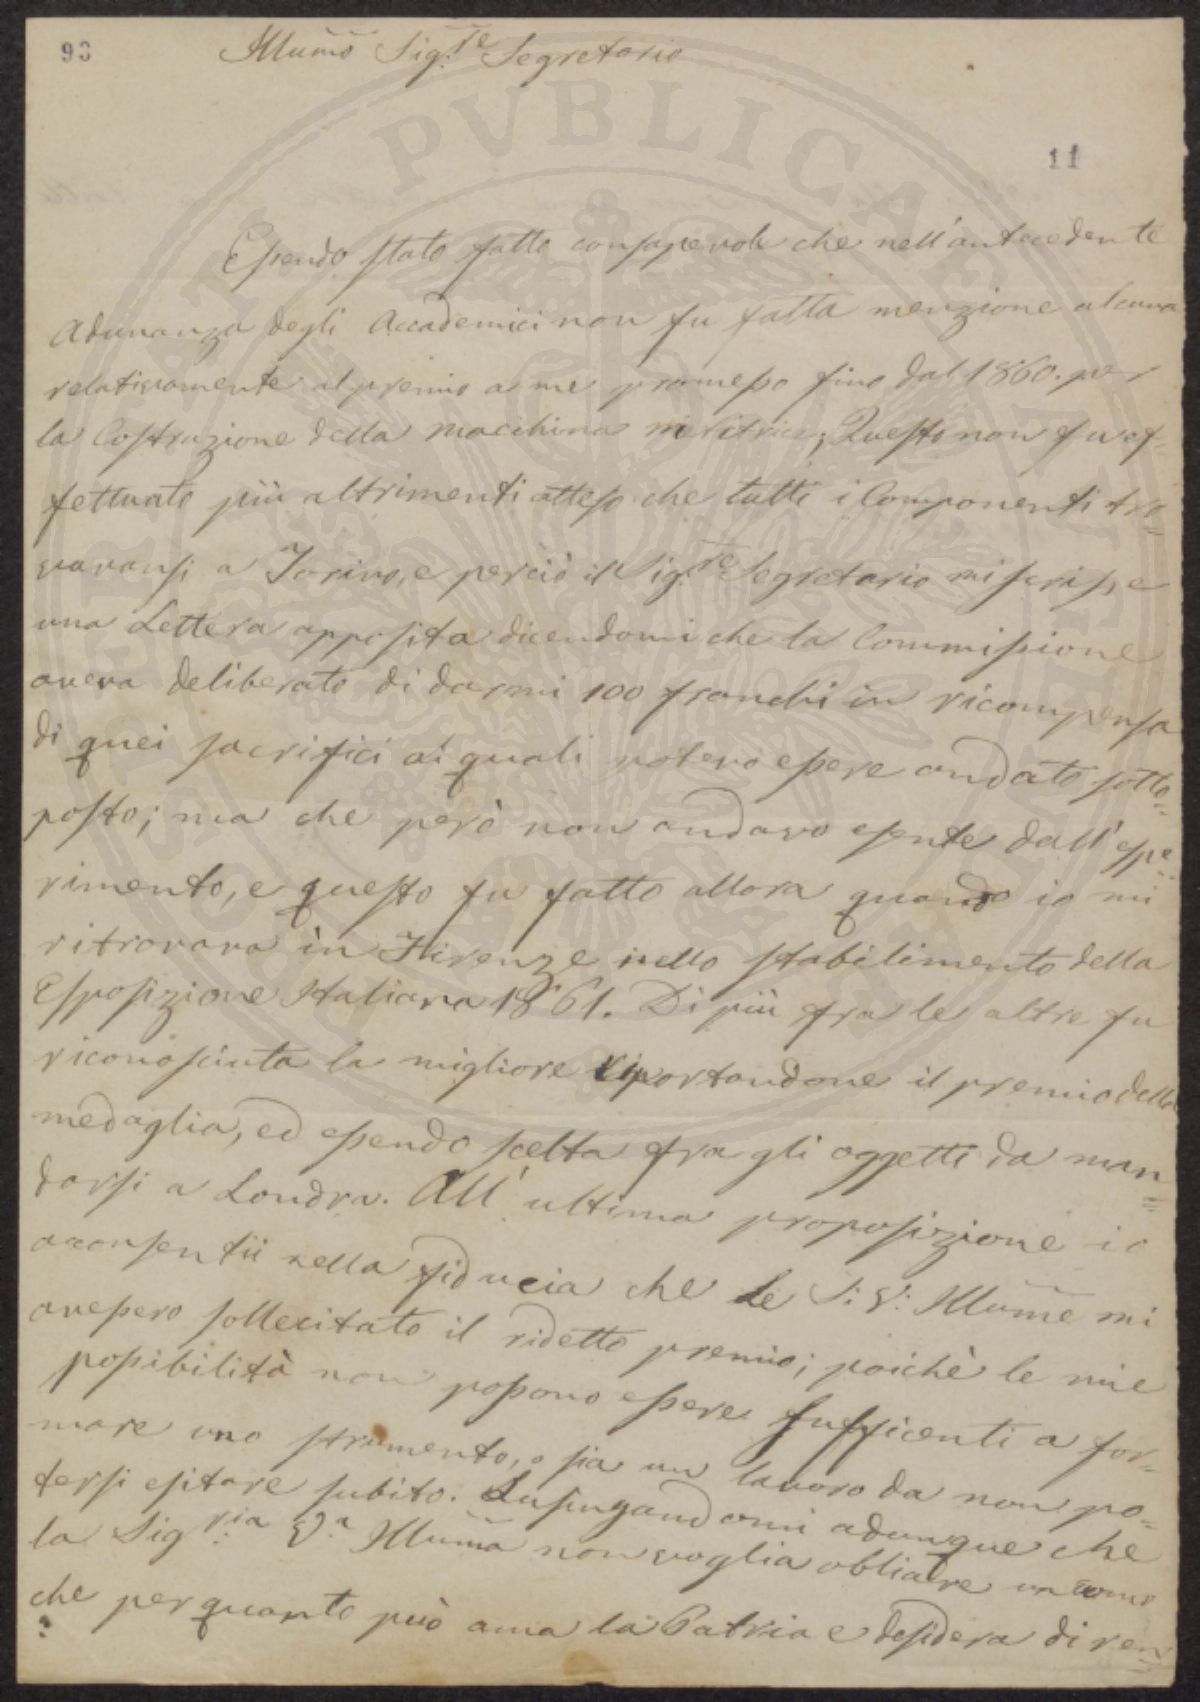 93
Illumo Sig.re Segretario
11
Essendo stato fatto consapevole che nell'antecedente
Adunanza degli Accademici non fu fatta menzione alcuna
relativamente al premio a me promesso fino dal 1860. per
la Costruzione della macchina mietitrice; Questo non fu ef=
fettuato più altrimenti atteso che tutti i Componenti tro=
vavansi a Torino, e perciò il Sig.re Segretario mi scrisse
una Lettera apposita dicendomi che la Commissione
aveva deliberato di darmi 100 franchi in ricompensa
di quei sacrifici ai quali potevo essere andato sotto=
posto; ma che però non andavo esente dall'espe=
rimento, e questo fu fatto allora quando io mi
ritrovava in Firenze nello stabilimento della
Esposizione Italiana 1861. Di più fra le altre fu
riconosciuta la migliore riportandone il premio della
medaglia, ed essendo scelta fra gli oggetti da man=
darsi a Londra. All'ultima proposizione io
acconsentii nella fiducia che Le S: V: Illume mi
avessero sollecitato il ridetto premio; poichè le mie
possibilità non possono essere sufficenti a for=
mare uno strumento, o sia un lavoro da non po=
tersi esitare subito. Lusingandomi adunque che
la Sig.ria V.a Illuma non voglia obliare un uomo
che per quanto può ama la Patria e desidera di ren=